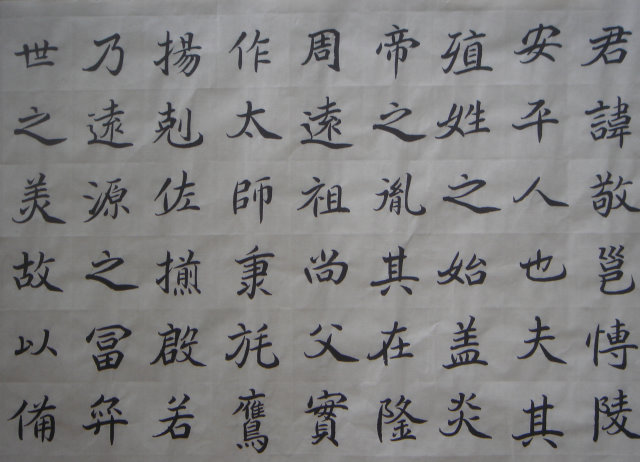 君諱敬邕愽陵
安平人也夫其
殖姓之始盖炎
帝之胤其在隆
周遠祖尚父實
作太師秉旄鷹
揚剋佐揃殷若
乃遠源之冨弈
世之美故以備